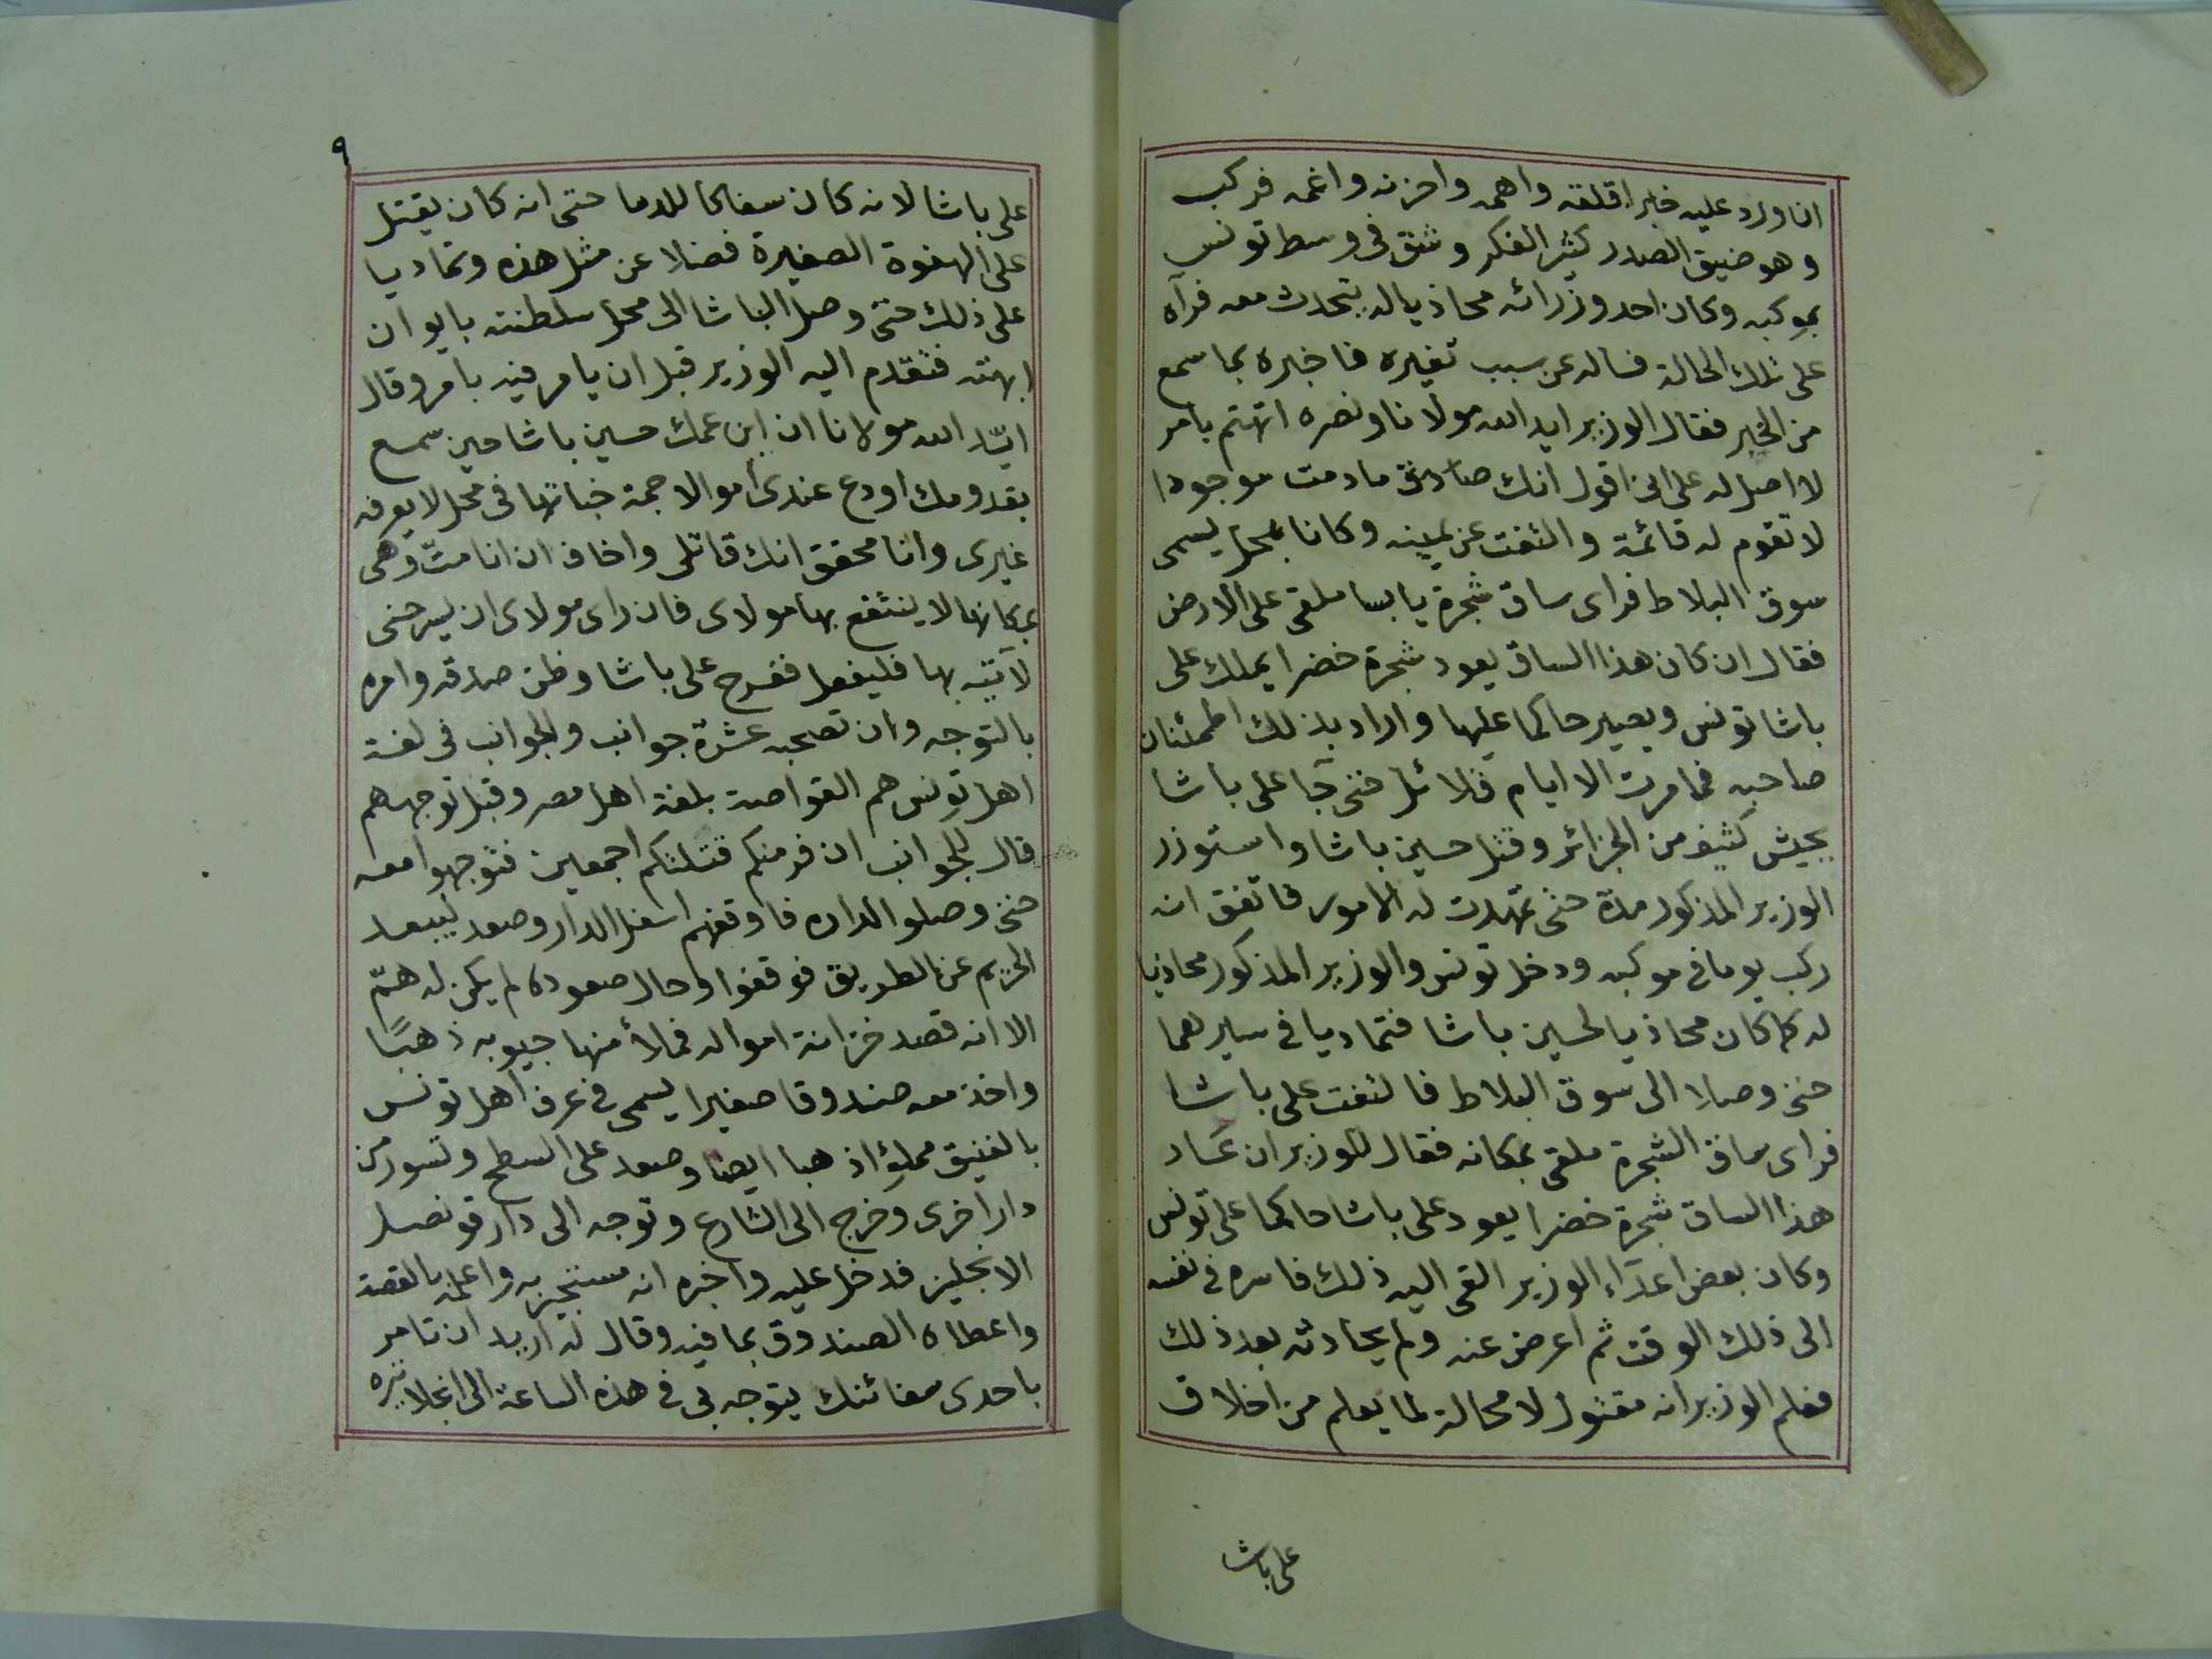 ان ورد عليه خبر اقلقه واهمه واحزنه واغمه فركب
وهو ضيق الصدر كثير الفكر وشق في وسط تونس
بموكبه وكان احد وزرائه محاذيا له يتحدث معه فرآه
على تلك الحالة فساله عن سبب تغيره فاخبره بما سمع
من الخبر فقال الوزير ايد الله مولانا ونصره اتهتم بامر
لا اصل له على انى اقول انك صادق مادمت موجودا
لا تقوم له قائمة والتفت عن يمينه وكانا بمحل يسمى
سوق البلاط فراى ساق شجرة يابسا ملقى على الارض
فقال ان كان هذا الساق يعود شجرة خضرا يملك على
باشا تونس ويصير حاكما عليها واراد بذلك اطمئنان
صاحبه فما مرت الا ايام قلائل حتى جآ على باشا
بجيش كثيف من الجزائر وقتل حسين باشا واستوزر
الوزير المذكور مدة حتى تمهدت له الامور فاتفق انه
ركب يوما في موكبه ودخل تونس والوزير المذكور محاذيا
له كما كان محاذيا لحسين باشا فتماديا في سيرهما
حتى وصلا الى سوق البلاط فالتفت على باشا
فراى ساق الشجرة ملقى بمكانه فقال للوزير ان عاد
هذا الساق شجرة خضرا يعود على باشا حاكما على تونس
وكان بعض اعدآء الوزير القى اليه ذلك فاسره في نفسه
الى ذلك الوقت ثم اعرض عنه ولم يحادثه بعد ذلك
فعلم الوزير انه مقتول لا محالة لما يعلم من اخلاق
على باشا
٩
على باشا لانه كان سفاكا للدما حتى انه كان يقتل
على الهفوة الصغيرة فضلا عن مثل هذه وتماديا
على ذلك حتى وصل الباشا الى محل سلطنته بايوان
ابهته فتقدم اليه الوزير قبل ان يامر فيه بامر وقال
ايّد الله مولانا ان ابن عمك حسين باشا حين سمع
بقدومك اودع عندى اموالا جمة خباتها في محل لا يعرفه
غيرى وانا محقق انك قاتلى واخاف ان انا متّ وهى
بمكانها لا ينتفع بها مولاى فان راى مولاى ان يسرحنى
لآتيه بها فليفعل ففرح على باشا وظن صدقه وامره
بالتوجه وان تصحبه عشرة جوانب والجوانب في لغة
اهل تونس هم القواصة بلغة اهل مصر وقبل توجههم
قال للجوانب ان فر منكم قتلتكم اجمعين فتوجهوا معه
حتى وصلو الداره فاوقفهم اسفل الدار وصعد ليبعد
الحريم عن الطريق فوقفوا وحال صعوده لم يكن له همّ
الا انه قصد خزانة امواله فملأ منها جيوبه ذهبًا
واخذ معه صندوقا صغيرا يسمى في عرف اهل تونس
بالفنيق مملؤا ذهبا ايضا وصعد على السطح وتسور من
دار اخرى وخرج الى الشارع وتوجه الى دار قونصل
الانجليز فدخل عليه واخبره انه مستجير به واعلمه بالقصة
واعطاه الصندوق بما فيه وقال له اريد ان تامر
باحدى سفائنك يتوجه بى في هذه الساعة الى انجلاتيره